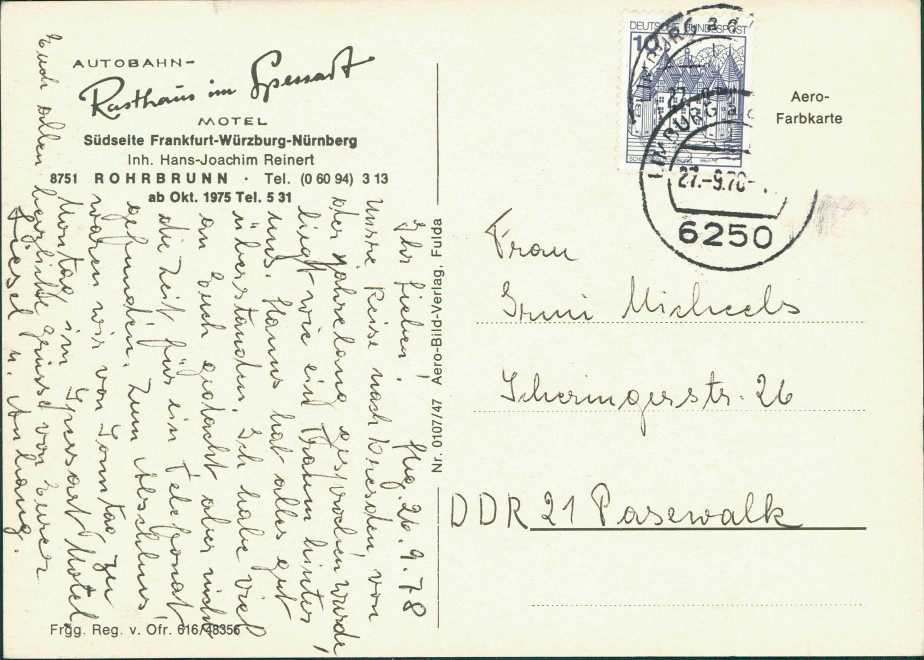 AUTOBAHN-
Rasthaus im Spessart
MOTEL
Südseite Frankfurt-Würzburg-Nürnberg
Inh. Hans-Joachim Reinert
8751 ROHRBRUNN · Tel. (0 60 94) 3 13
ab Okt. 1975 Tel. 5 31
26.9.78
Ihr Lieben!
Unsere Reise nach Dresden, von
der jahrelang gesprochen wurde,
liegt wie ein Traum hinter
uns. Hanns hat alles gut
überstanden. Ich habe viel
an Euch gedacht, aber nicht
die Zeit für ein Telefonat
gefunden. Zum Abschluss
waren wir von Sonntag zu
Montag im Spessart Motel.
Euch allen herzliche Grüsse von Eurer
Liesel u. Anhang.
Frgg. Reg. v. Ofr. 616/48356
Nr. 0107/47 Aero-Bild-Verlag, Fulda
DEUTSCHE BUNDESPOST
10
LIMBURG
27.-9.78-
6250
Aero-
Farbkarte
Frau
Irmi Michaels
Scheringerstr. 26
DDR 21 Pasewalk